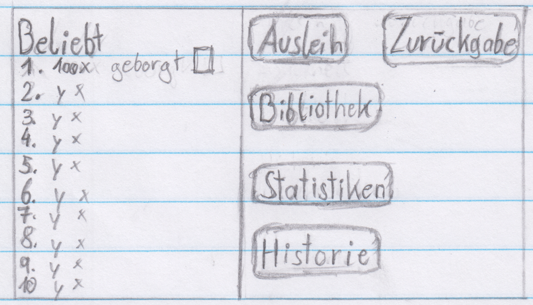 Beliebt
1. 100x geborgt
2. y x
3. y x
4. y x
5. y x
6. y x
7. y x
8. y x
9. y x
10 y x
Ausleih
Zurückgabe
Bibliothek
Statistiken
Historie